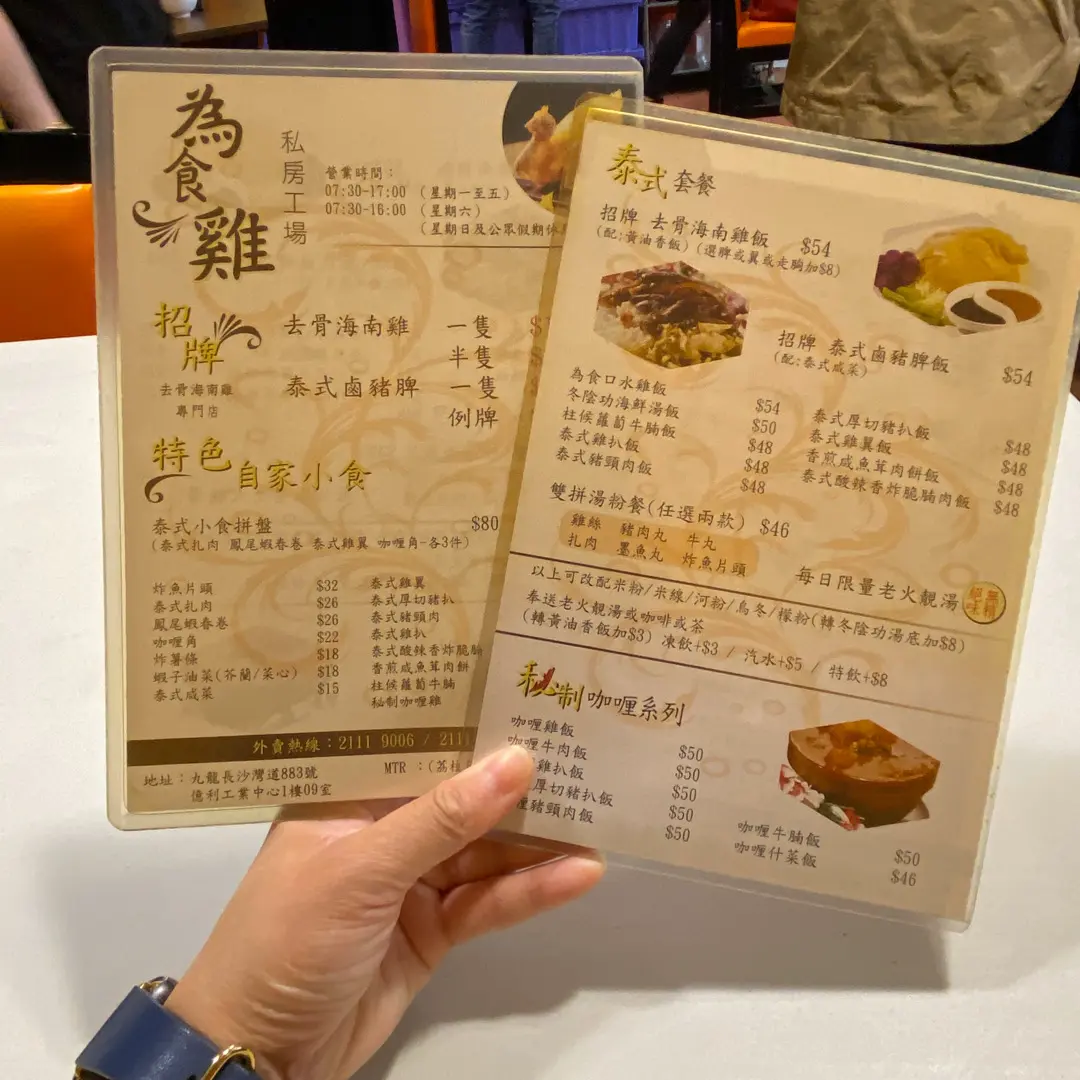 為食雞
私房工場
營業時間：
07:30-17:00 (星期一至五)
07:30-16:00 (星期六)
(星期日及公眾假期休
招牌
去骨海南雞
專門店
去骨海南雞 一隻
半隻
泰式鹵豬脾 一隻
例牌
特色 自家小食
泰式小食拼盤 $80
(泰式扎肉 鳳尾蝦春卷 泰式雞翼 咖喱角-各3件)
炸魚片頭 $32
泰式扎肉 $26
鳳尾蝦春卷 $26
咖喱角 $22
炸薯條 $18
蝦子油菜(芥蘭/菜心) $18
泰式咸菜 $15
泰式雞翼
泰式厚切豬扒
泰式豬頸肉
泰式雞扒
泰式酸辣香炸脆腩
香煎咸魚茸肉餅
柱候蘿蔔牛腩
秘制咖喱雞
外賣熱線：2111 9006 / 211
地址：九龍長沙灣道883號
億利工業中心1樓09室
MTR ：(荔枝
泰式 套餐
招牌 去骨海南雞飯 $54
(配:黃油香飯)(選脾或翼或走胸加$8)
招牌 泰式鹵豬脾飯 $54
(配:泰式咸菜)
為食口水雞飯 $54
冬陰功海鮮湯飯 $50
柱候蘿蔔牛腩飯 $48
泰式雞扒飯 $48
泰式豬頸肉飯 $48
泰式厚切豬扒飯 $48
泰式雞翼飯 $48
香煎咸魚茸肉餅飯 $48
泰式酸辣香炸脆腩肉飯 $48
雙拼湯粉餐(任選兩款) $46
雞絲 豬肉丸 牛丸
扎肉 墨魚丸 炸魚片頭
每日限量老火靚湯
以上可改配米粉/米線/河粉/烏冬/檬粉(轉冬陰功湯底加$8)
奉送老火靚湯或咖啡或茶
(轉黃油香飯加$3) 凍飲+$3 / 汽水+$5 / 特飲+$8
秘制咖喱系列
咖喱雞飯 $50
咖喱牛肉飯 $50
雞扒飯 $50
厚切豬扒飯 $50
喱豬頸肉飯 $50
咖喱牛腩飯 $50
咖喱什菜飯 $46